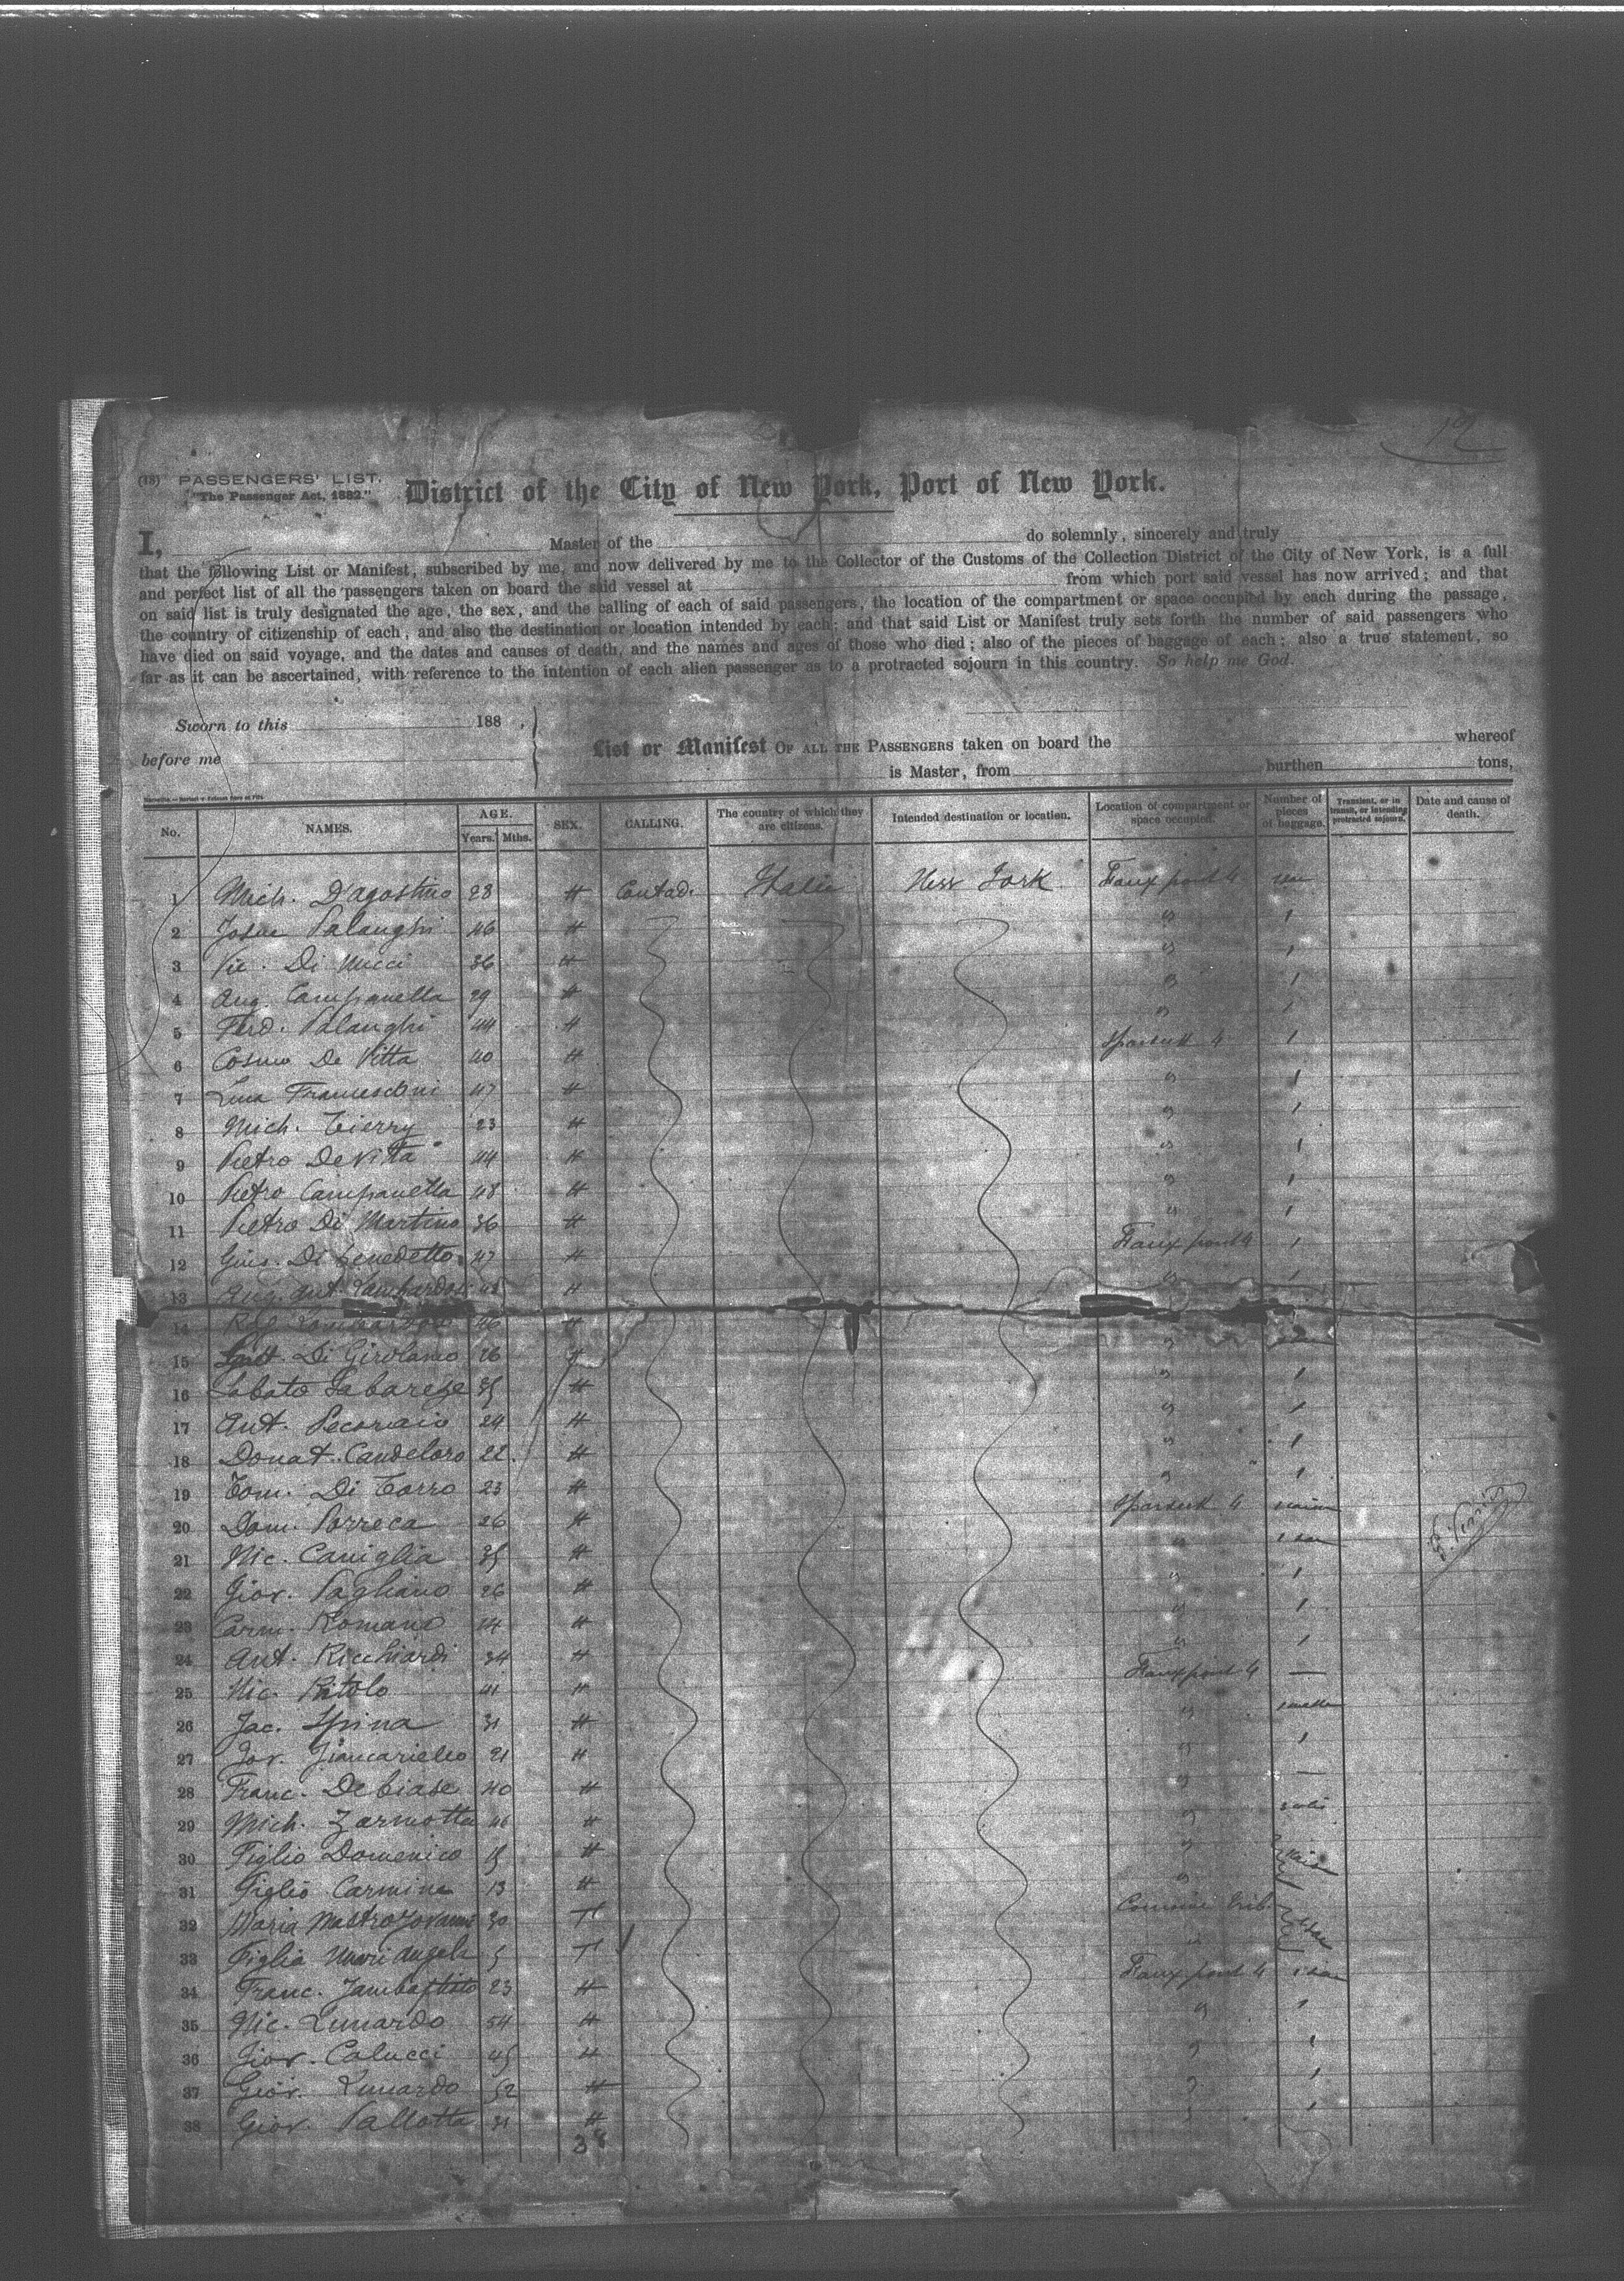 12
(13) PASSENGERS' LIST.
"The Passenger Act, 1882."
District of the City of New York, Port of New York.
I, Master of the do solemnly, sincerely and truly
that the following List or Manifest, subscribed by me, and now delivered by me to the Collector of the Customs of the Collection District of the City of New York, is a full
and perfect list of all the passengers taken on board the said vessel at from which port said vessel has now arrived; and that
on said list is truly designated the age, the sex, and the calling of each of said passengers, the location of the compartment or space occupied by each during the passage,
the country of citizenship of each, and also the destination or location intended by each; and that said List or Manifest truly sets forth the number of said passengers who
have died on said voyage, and the dates and causes of death, and the names and ages of those who died; also of the pieces of baggage of each; also a true statement, so
far as it can be ascertained, with reference to the intention of each alien passenger as to a protracted sojourn in this country. So help me God.
Sworn to this 188 ,
before me
List or Manifest OF ALL THE PASSENGERS taken on board the whereof
is Master, from burthen tons,
No. NAMES. AGE. Years. Mths. SEX. CALLING. The country of which they are citizens. Intended destination or location. Location of compartment or space occupied. Number of pieces of baggage. Transient, or in transit, or intending protracted sojourn. Date and cause of death.
1 Mich. D'agostino 28 H Contad. Italie New York Fauxpont 4
2 Josue Palanghi 46 H " 1
3 Vic. Di Nucci 36 H " 1
4 Ang. Campanella 29 H " 1
5 Ferd. Palanghi 44 H " 1
6 Cosmo De Vitta 40 H Spardeck 4 1
7 Francesconi 47 H " 1
8 Mich. Tierry 23 H " 1
9 Pietro De Vitta 44 H " 1
10 Pietro Campanella 48 H " 1
11 Pietro Di Martino 36 H " 1
12 Gius. Di Benedetto 47 H Fauxpont 4 1
13 Ang. Ant. H " 1
14 46 H
15 Di Girolamo 26 H "
16 Sabato Sabarese 35 H " 1
17 Ant. Pecoraio 24 H " 1
18 Donat. Candeloro 22 H " 1
19 Tom. Di Torro 23 H " 1
20 Dom. Porreca 26 H Spardeck 4
21 Nic. Caniglia 35 H " 1 sac
22 Giov. Pagliano 26 H " 1
23 Carm. Romano 14 H " 1
24 Ant. Ricchiardi 34 H " 1
25 Nic. Pitolo 41 H Fauxpont 4 —
26 Jac. Spina 31 H "
27 Jov. Jiancariello 21 H " 1
28 Franc. Debiase 40 H " —
29 Mich. Zarmotta 46 H "
30 Figlio Domenico 15 H "
31 Figlio Carmine 13 H "
32 Maria Mastrojovanni 30 F
33 Figlia Marie Angela 5 F "
34 Franc. Jambattista 23 H Fauxpont 4 1 sac
35 Nic. Lunardo 54 H " 1
36 Giov. Calucci 45 H " 1
37 Giov. Lunardo 52 H " 1
38 Giov. Pallotta 31 H " 1
38